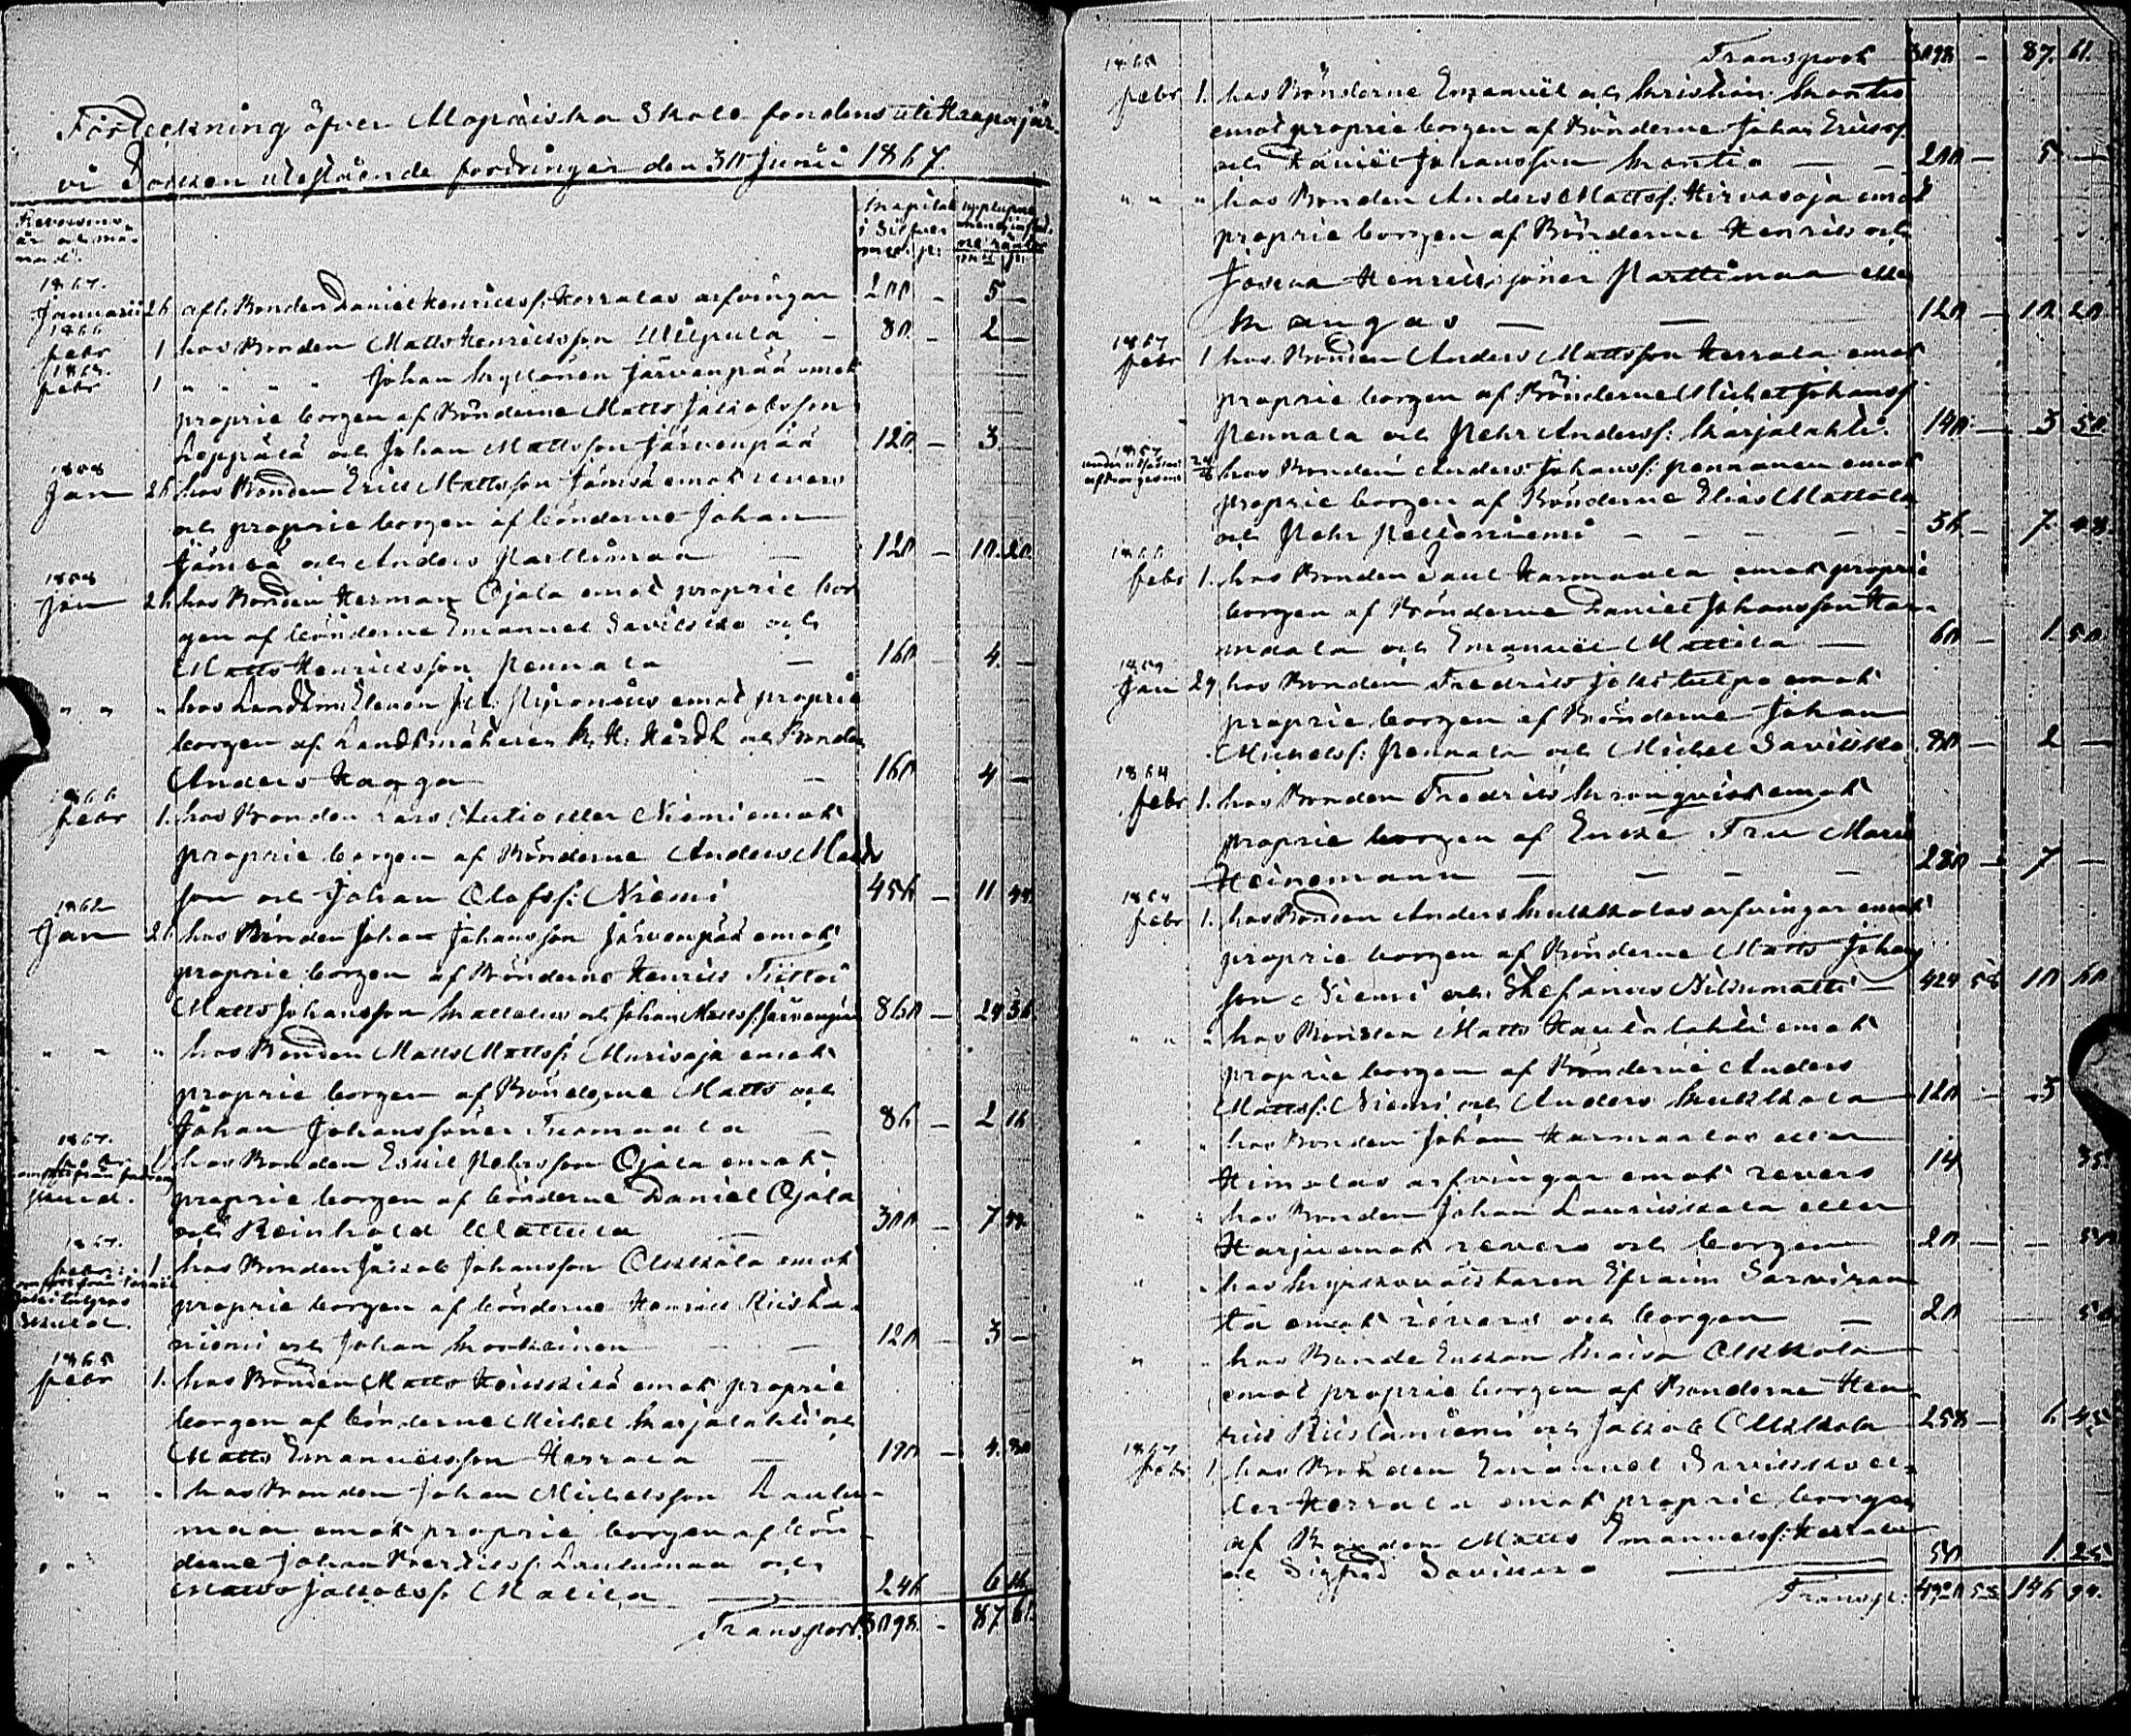 Förteckning öfver Mopræiska Skole fondens uti Haapajär-
vi Socken utestående fordringar den 30 Junii 1867.
Reversens
år och må-
nad.
Kapital
i Silfver
1867.
Januarii 26 afl. Bonden Daniel Henrikss. Herralas arfvingar 200 - 5 -
1866
febr 1 hos Bonden Matts Henriksson Uilpula - 80 - 2 -
febr 1 " " " Johan Kyllönen Järvenpää emot
proprie borgen af Bönderne Matts Jakobsson
Leppälä och Johan Mattsson Järvenpää 120 - 3 -
1858
Jan 26 hos Bonden Erik Mattsson Jämsä emot revers
och proprie borgen af bönderne Johan
Jämsä och Anders Parttimaa - 120 - 10 20
Jan 26 hos Bonden Herman Ojala emot proprie bor
gen af bönderne Emanuel Saviisko och
Matts Henriksson Pennala - 160 - 4 -
" " " hos Landtm. Eleven
borgen af Landtmätaren K. H. Hårdh och Bonden
Anders Haaga - 160 4 -
1866
febr 1. hos Bonden Lars Autio eller Niemi emot
proprie borgen af Bönderne Anders Matts
son och Johan Olofss: Niemi 456 - 11 40
1862
Jan 26 hos Bonden Johan Johansson Järvenpää emot
proprie borgen af Bönderne Henrik Tiitto
Matts Johansson och Johan Matss. Järvenpää 860 - 24 36
" " " hos Bonden Matts Mattss: Murisoja emot
proprie borgen af Bönderne Matts och
Johan Johanssöner Tuomaala - 86 - 2 16
1867.
febr 1 hos Bonden Esaiæ Pehrsson Ojala emot
proprie borgen af bönderne Daniel Ojala
och Reinhold Mattila 300 - 7 50
1867.
febr. 1 hos Bonden Jakob Johansson Olkkola emot
proprie borgen af bönderne Henrik Riista-
niemi och Johan Korkeinen - 120 - 3 -
1865
febr 1. hos Bonden Matts Höuskilä emot proprie
borgen af bönderne Michel Karjalahti och
Matts Emanuelsson Herrala - 190 - 4. 80
" " " hos Bonden Johan Michelsson Lautu-
maa emot proprie borgen af bön-
derne Johan Lautumaa och
Matts Jakobss. Matila 246 6 16
Transport. 3098. - 87 61.
1865 Transport 3098 - 87. 61.
febr 1. hos Bönderne Emanuel och Kristian Kontio
emot proprie borgen af Bönderne Johan Erikss.
och Daniel Johansson Kontio - - 200 - 5 -
" " " hos Bonden Anders Mattss: Hirvasoja emot
proprie borgen af Bönderne Henrik och
Josua Henrikssöner Parttimaa eller
Kangas - - 120 - 10 20
1867
febr 1 hos Bonden Anders Mattsson Herrala emot
proprie borgen af Bönderne Michel Johanss
Pennala och Pehr Anderss: Karjalahti. 140 - 3 50
1857
hos Bonden Anders Johanss: Pennanen emot
proprie borgen af Bönderne Elias Mattila
och Pehr Pellonniemi - - - - - 56 - 7. 48
1866
febr 1. hos Bonden Paul Harmaala emot proprie
borgen af Bönderne Daniel Johansson Har-
maala och Emanuel Mattila - 60 - 1 50
1859
Jan 29 hos Bonden Fredrik Jokitulpo emot
proprie borgen af Bönderne Johan
Michelss: Pennala och Michel Saviisko 80 - 2 -
1864
febr 1. hos Bonden Fredrik Kronqvist emot
proprie borgen af Enke Fru Maria
Heinemann - - - - 280 - 7 -
febr 1. hos Bonden Anders Kukkolas arfvingar emot
proprie borgen af Bönderne Matts Johans
son Niemi och Stefanus Niskumatti - 424 58 10 60
" " " hos Bonden Matts Hautalahti emot
proprie borgen af Bönderne Anders
Mattss: Niemi och Anders Kukkola 120 - 3
" " hos Bonden Johan Harmaalas eller
Himolas arfvingar emot revers 14 35
" " hos Bonden Johan Lauriskala eller
Harju emot revers och borgen 20 - - 50
" " hos Kyrkoväktaren Efraim Sarviran
ta emot revers och borgen - 20 50
" " hos Bonde Enkan Kaisa Olkkola
emot proprie borgen af Bönderne Hen
rik Riistaniemi och Jakob Olkkola 258 - 6 45
1867
febr 1 hos Bonden Emanuel Saviisko el-
ler Herrala emot proprie borgen
af Bonden Matts Emanuelss: Herrala
och Sigfrid Saviisko 50 1 25
Transp: 4920 58 146 94.